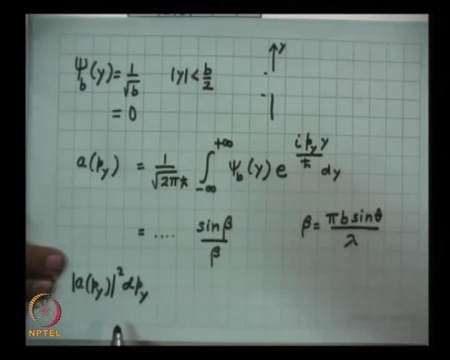 ψ_b(y) = 1/√b |y| < b/2
= 0
y
a(p_y) = 1/√(2πħ) ∫_{-∞}^{+∞} ψ_b(y) e^{i p_y y/ħ} dy
= .... sin β/β β = πb sinθ/λ
|a(p_y)|² dp_y
NPTEL